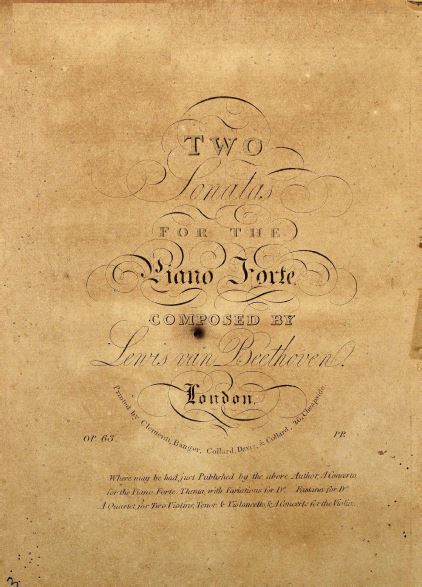 TWO
Sonatas
FOR THE
Piano Forte.
COMPOSED BY
Lewis van Beethoven.
London.
Printed by Clementi, Banger, Collard, Davis, & Collard, 26, Cheapside.
OP. 63. PR.
Where may be had, just Published by the above Author, A Concerto
for the Piano Forte. Thema, with Variations for Do. Fantasia for Do.
A Quartet, for Two Violins, Tenor, & Violoncello, & A Concerto for the Violin.
3